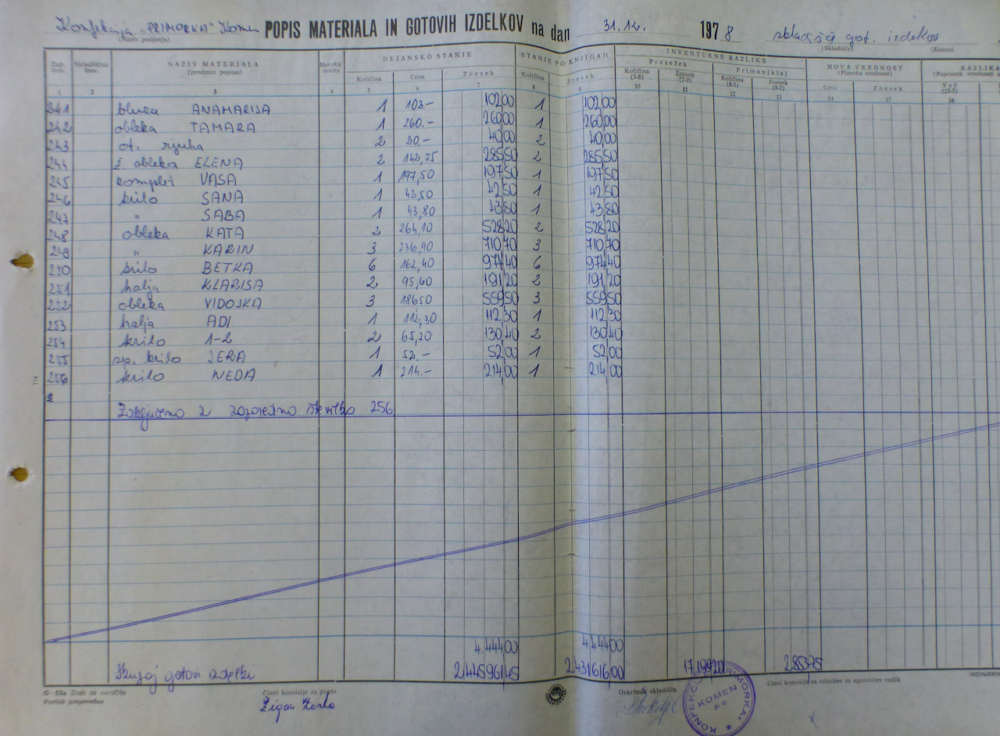 Konfekcija "PRIMORKA" Komen POPIS MATERIALA IN GOTOVIH IZDELKOV na dan 31.12. 1978 skladišče got. izdelkov
(Naziv podjetja) (Skladišče)
NAZIV MATERIALA DEJANSKO STANJE STANJE PO KNJIGAH INVENTURNE RAZLIKE NOVA VREDNOST RAZLIKA
(predmet popisa) Količina Cena Znesek Količina Znesek Presežek Primanjkljaj Cena Znesek Več
1 2 3 4 5 6 7 8 9 10 11 12 13 14 15 16
241 bluza ANAMARIJA 1 102.- 102,00 1 102,00
242 obleka TAMARA 1 260.- 260,00 1 260,00
243 ot. rjuha 2 20.- 40,00 2 40,00
244 ž. obleka ELENA 2 142,75 285,50 2 285,50
245 komplet VASA 1 197,50 197,50 1 197,50
246 krilo SANA 1 42,50 42,50 1 42,50
247 " SABA 1 43,80 43,80 1 43,80
248 obleka KATA 2 264,10 528,20 2 528,20
249 " KARIN 3 236,90 710,70 3 710,70
250 krilo BETKA 6 162,40 974,40 6 974,40
251 halja KLARISA 2 95,60 191,20 2 191,20
252 obleka VIDOJKA 3 186,50 559,50 3 559,50
253 halja ADI 1 112,30 112,30 1 112,30
254 krilo 1-2 2 65,20 130,40 2 130,40
255 sp. krilo JERA 1 52.- 52,00 1 52,00
256 krilo NEDA 1 214.- 214,00 1 214,00
Zaključeno z zaporedno številko 256
4.444,00 4.444,00
Skupaj gotovi izdelki
Člani komisije za popis
KONFEKCIJA PRIMORKA KOMEN